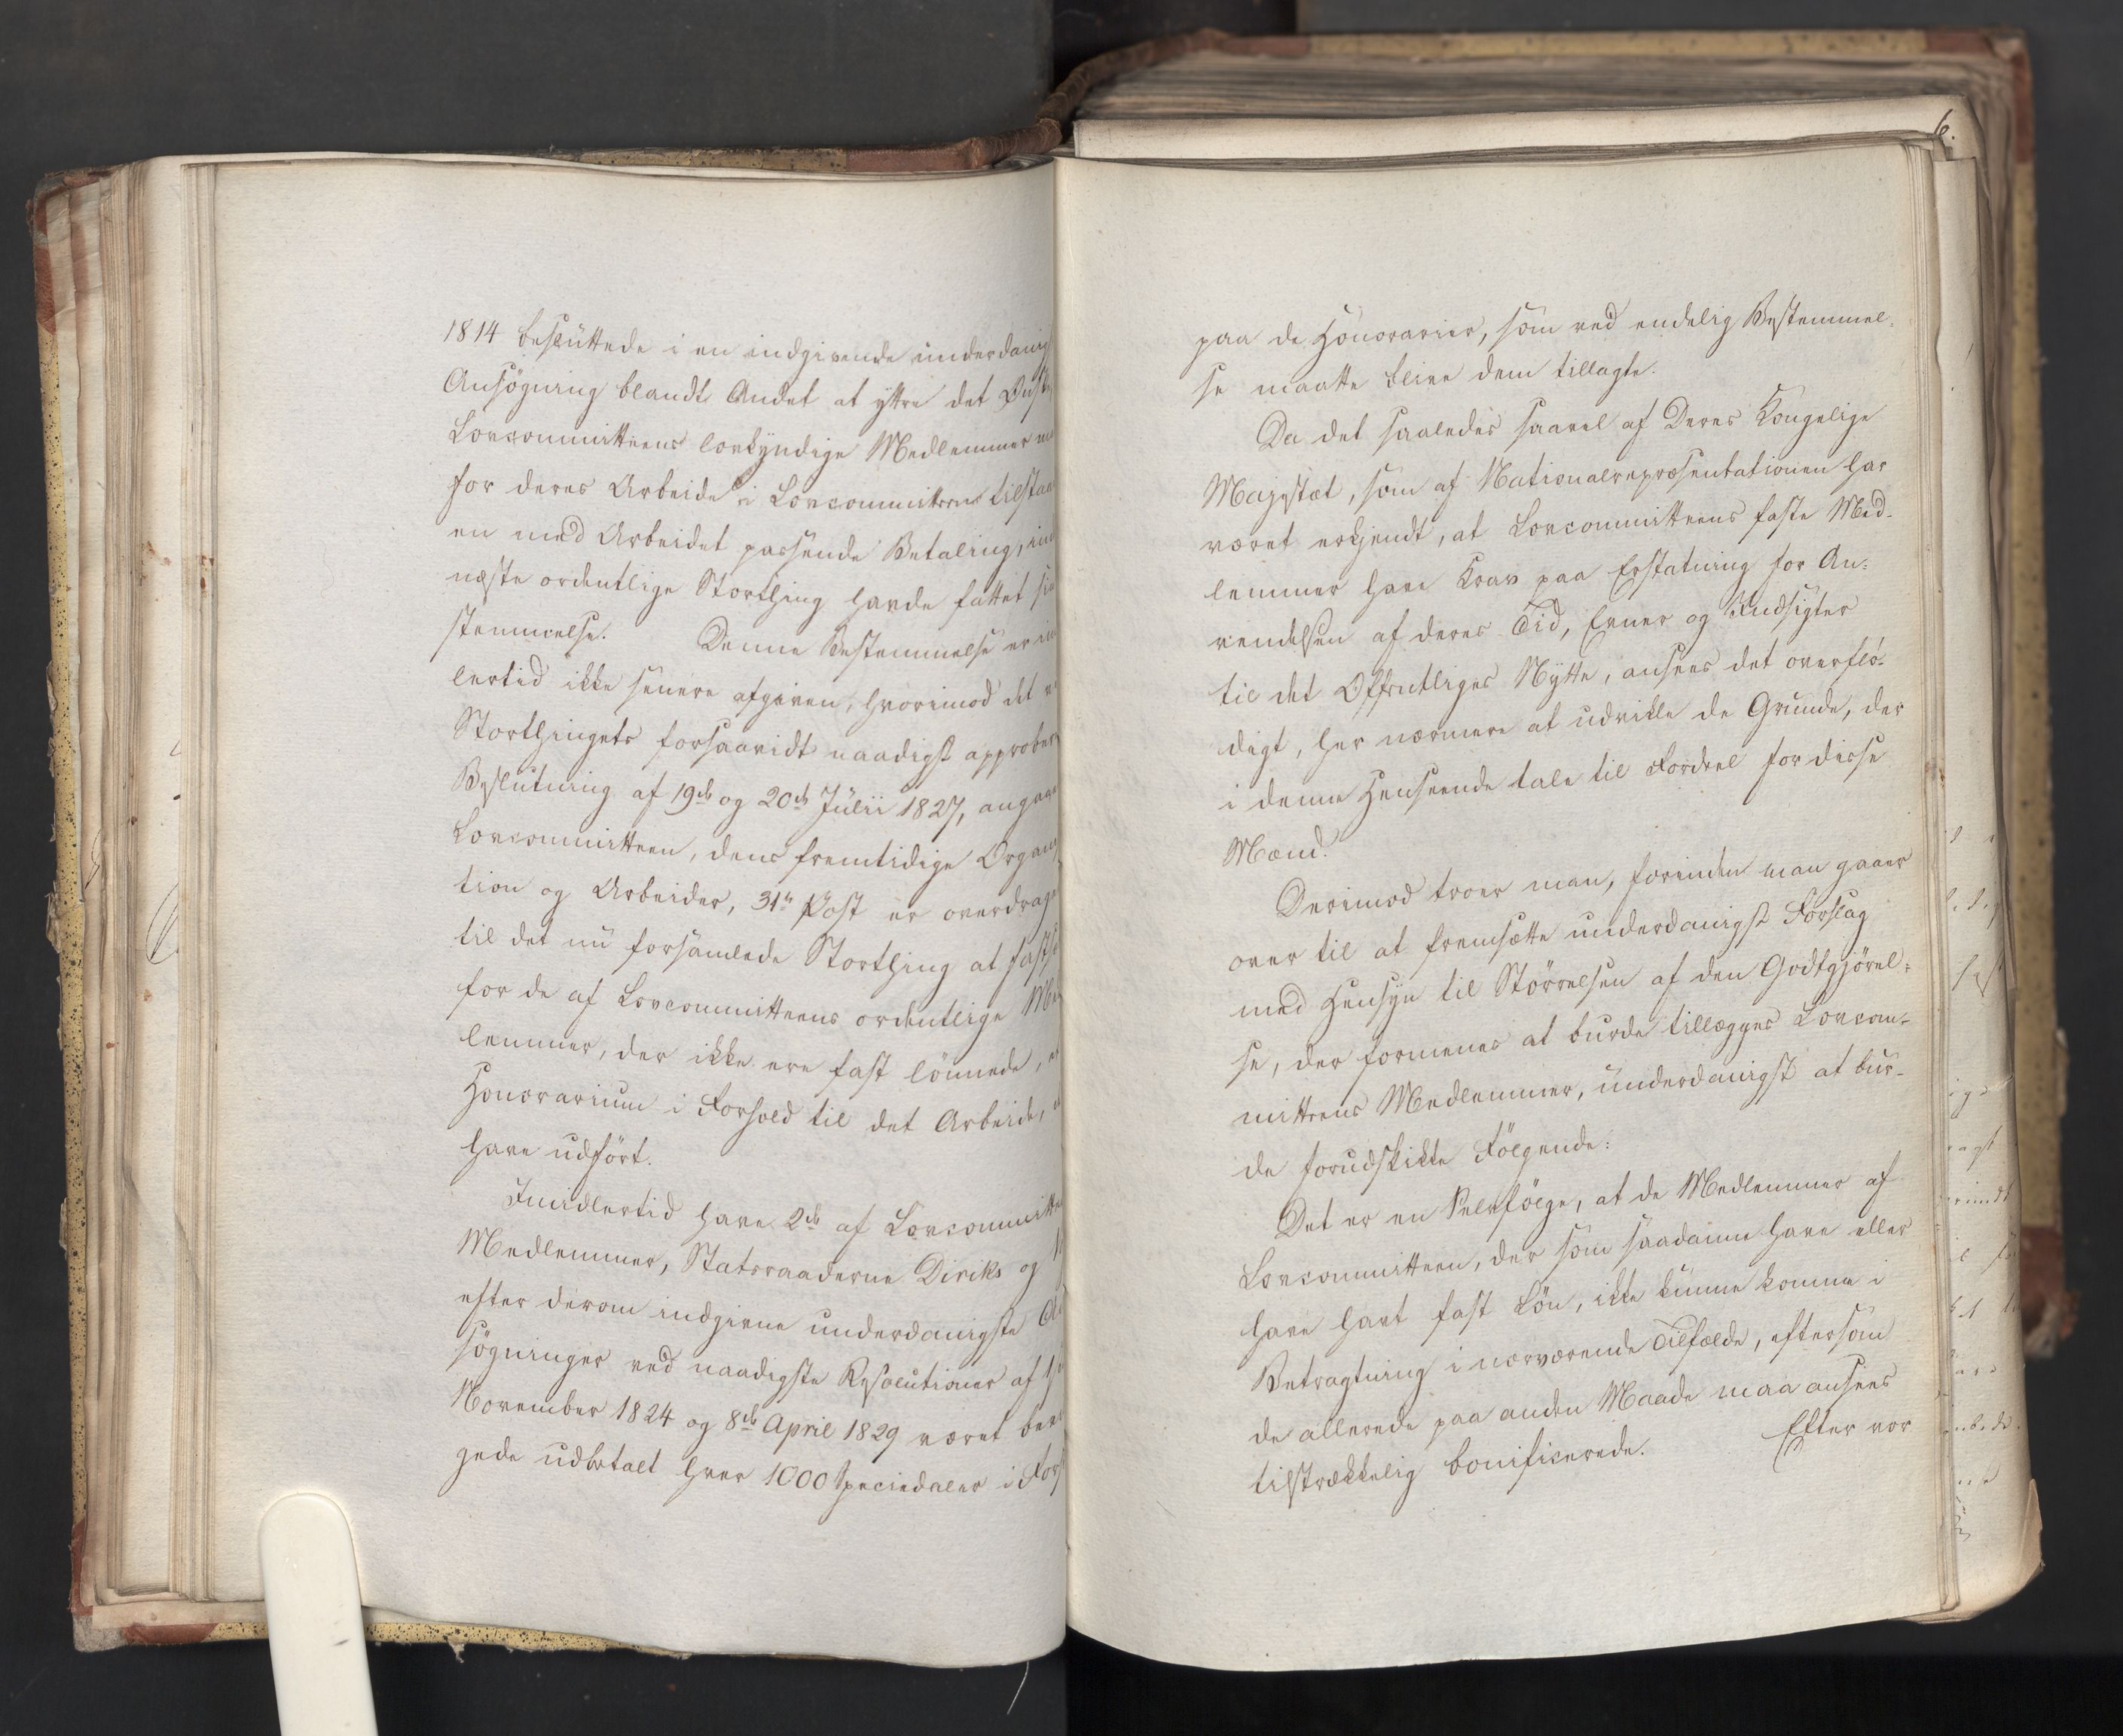 1814 besluttede i en indgivende underdanig
Ansøgning blandt Andet at yttre det Ønske
Lovcommitteens lovkyndige Medlemmer
for deres Arbeide i Lovcommitteen tilstaae
en med Arbeidet passende Betaling,
næste ordentlige Storthing havde fattet
stemmelse. Denne Bestemmelse er
lertid ikke senere afgiven, hvorimod det
Storthingets forsaavidt naadigst approber
Beslutning af 19de og 20de Julii 1827, angaae
Lovcommitteen, dens fremtidige Organ
tion og Arbeider, 31te Post er overdrag
til det nu forsamlede Storthing at fasts
for de af Lovcommitteens ordentlige Me
lemmer, der ikke ere fast lønnede,
Honorarium i Forhold til det Arbeide,
have udført.
Imidlertid have 2de af Lovcommitte
Medlemmer, Statsraaderne Diriks og
efter derom indgivne underdanigste
søgninger ved naadigste Resolutioner af
November 1824 og 8de April 1829 været
gede udbetalt hver 1000 Speciedaler i Fors
6.
paa de Honorarier, som ved endelig Bestemmel-
se maatte blive dem tillagte.
Da det saaledes saavel af Deres Kongelige
Majestæt, som af Nationalrepræsentationen har
været erkjendt, at Lovcommitteens faste Med-
lemmer have Krav paa Erstatning for An-
vendelsen af deres Tid, Evner og Indsigter
til det Offentliges Nytte, ansees det overflø-
digt, her nærmere at udvikle de Grunde, der
i denne Henseende tale til Fordeel for disse
Mænd.
Derimod troer man, forinden man gaaer
over til at fremsætte underdanigst Forslag
med Hensyn til Størrelsen af den Godtgjørel-
se, der formenes at burde tillægges Lovcom-
mitteens Medlemmer, underdanigst at bur-
de forudskikke Følgende:
Det er en Selvfølge, at de Medlemmer af
Lovcommitteen, der som saadanne have eller
have havt fast Løn, ikke kunne komme i
Betragtning i nærværende Tilfælde, eftersom
de allerede paa anden Maade maa ansees
tilstrækkelig bonificerede. Efter vor